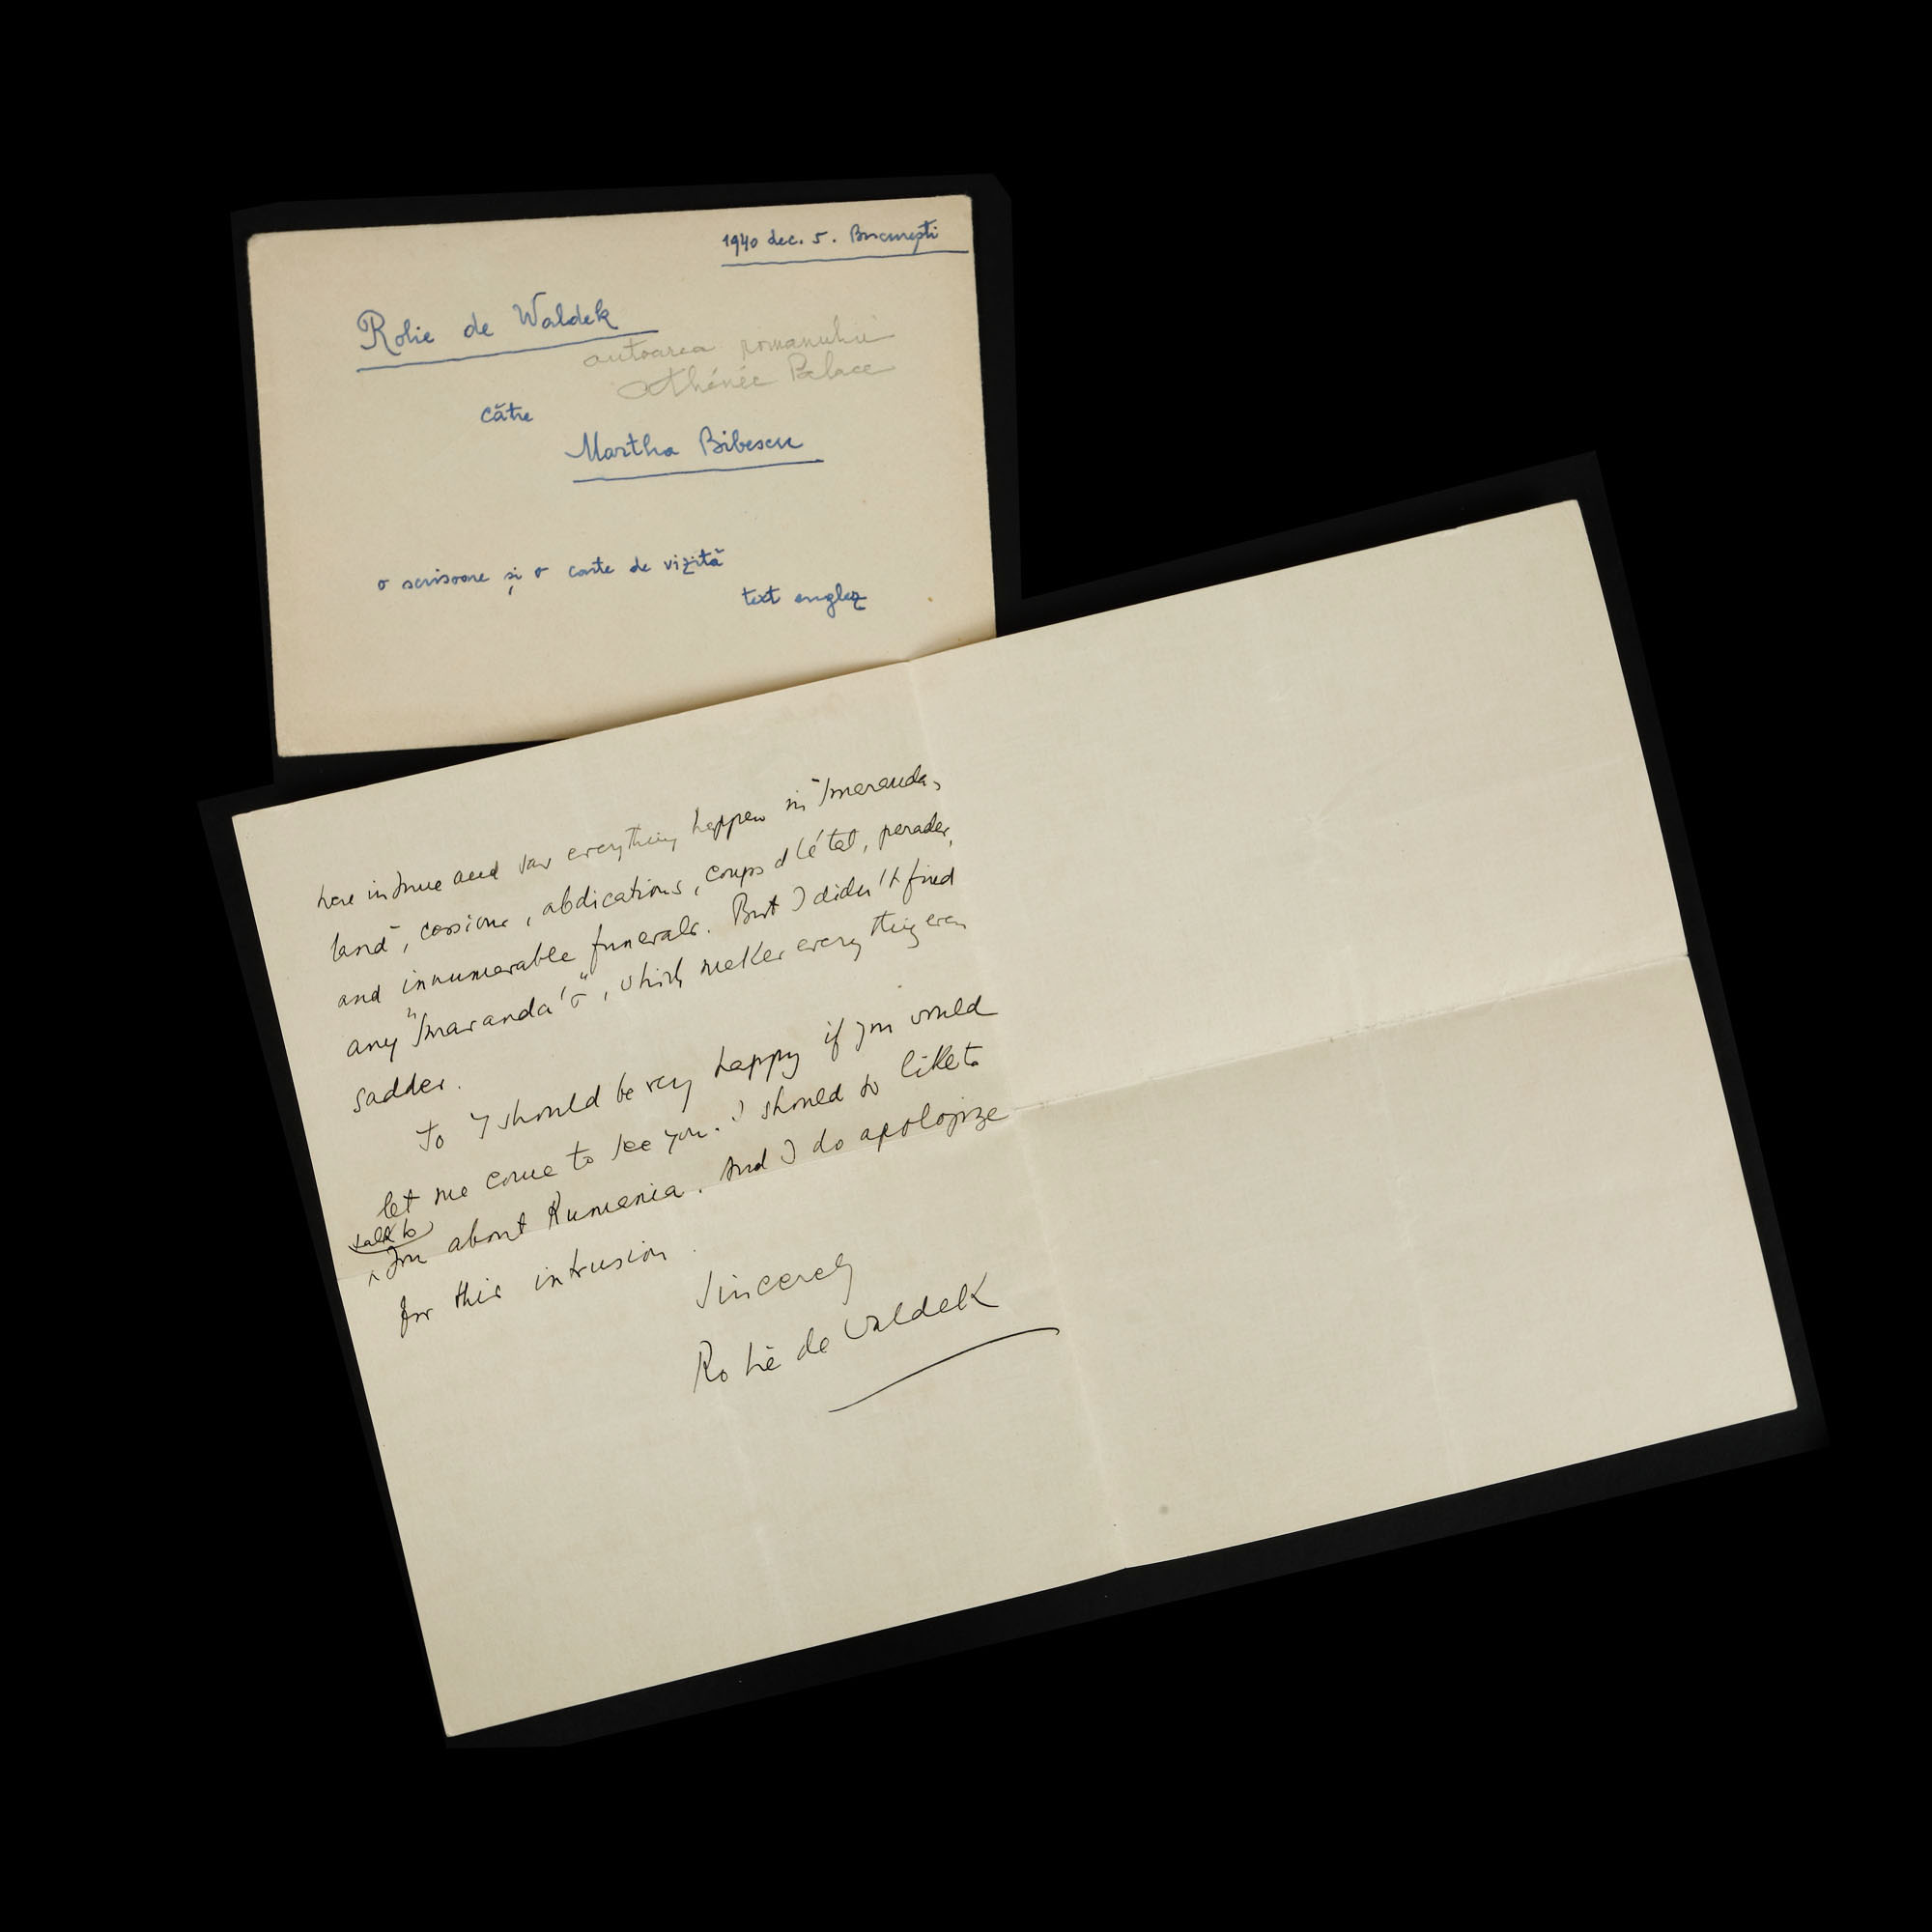 1940 dec. 5. București
Rolie de Waldek
autoarea romanului
Athénée Palace
către
Martha Bibescu
o scrisoare și o carte de vizită
text englez
here in June and saw everything happen in "Imaranda,
land", cessions, abdications, coups d'état, parades,
and innumerable funerals. But I didn't find
any "Imaranda's", which makes everything even
sadder.
So I should be very happy if you would
let me come to see you. I should so like to
talk to
you about Rumania. And I do apologize
for this intrusion.
Sincerely
Rolie de Waldek